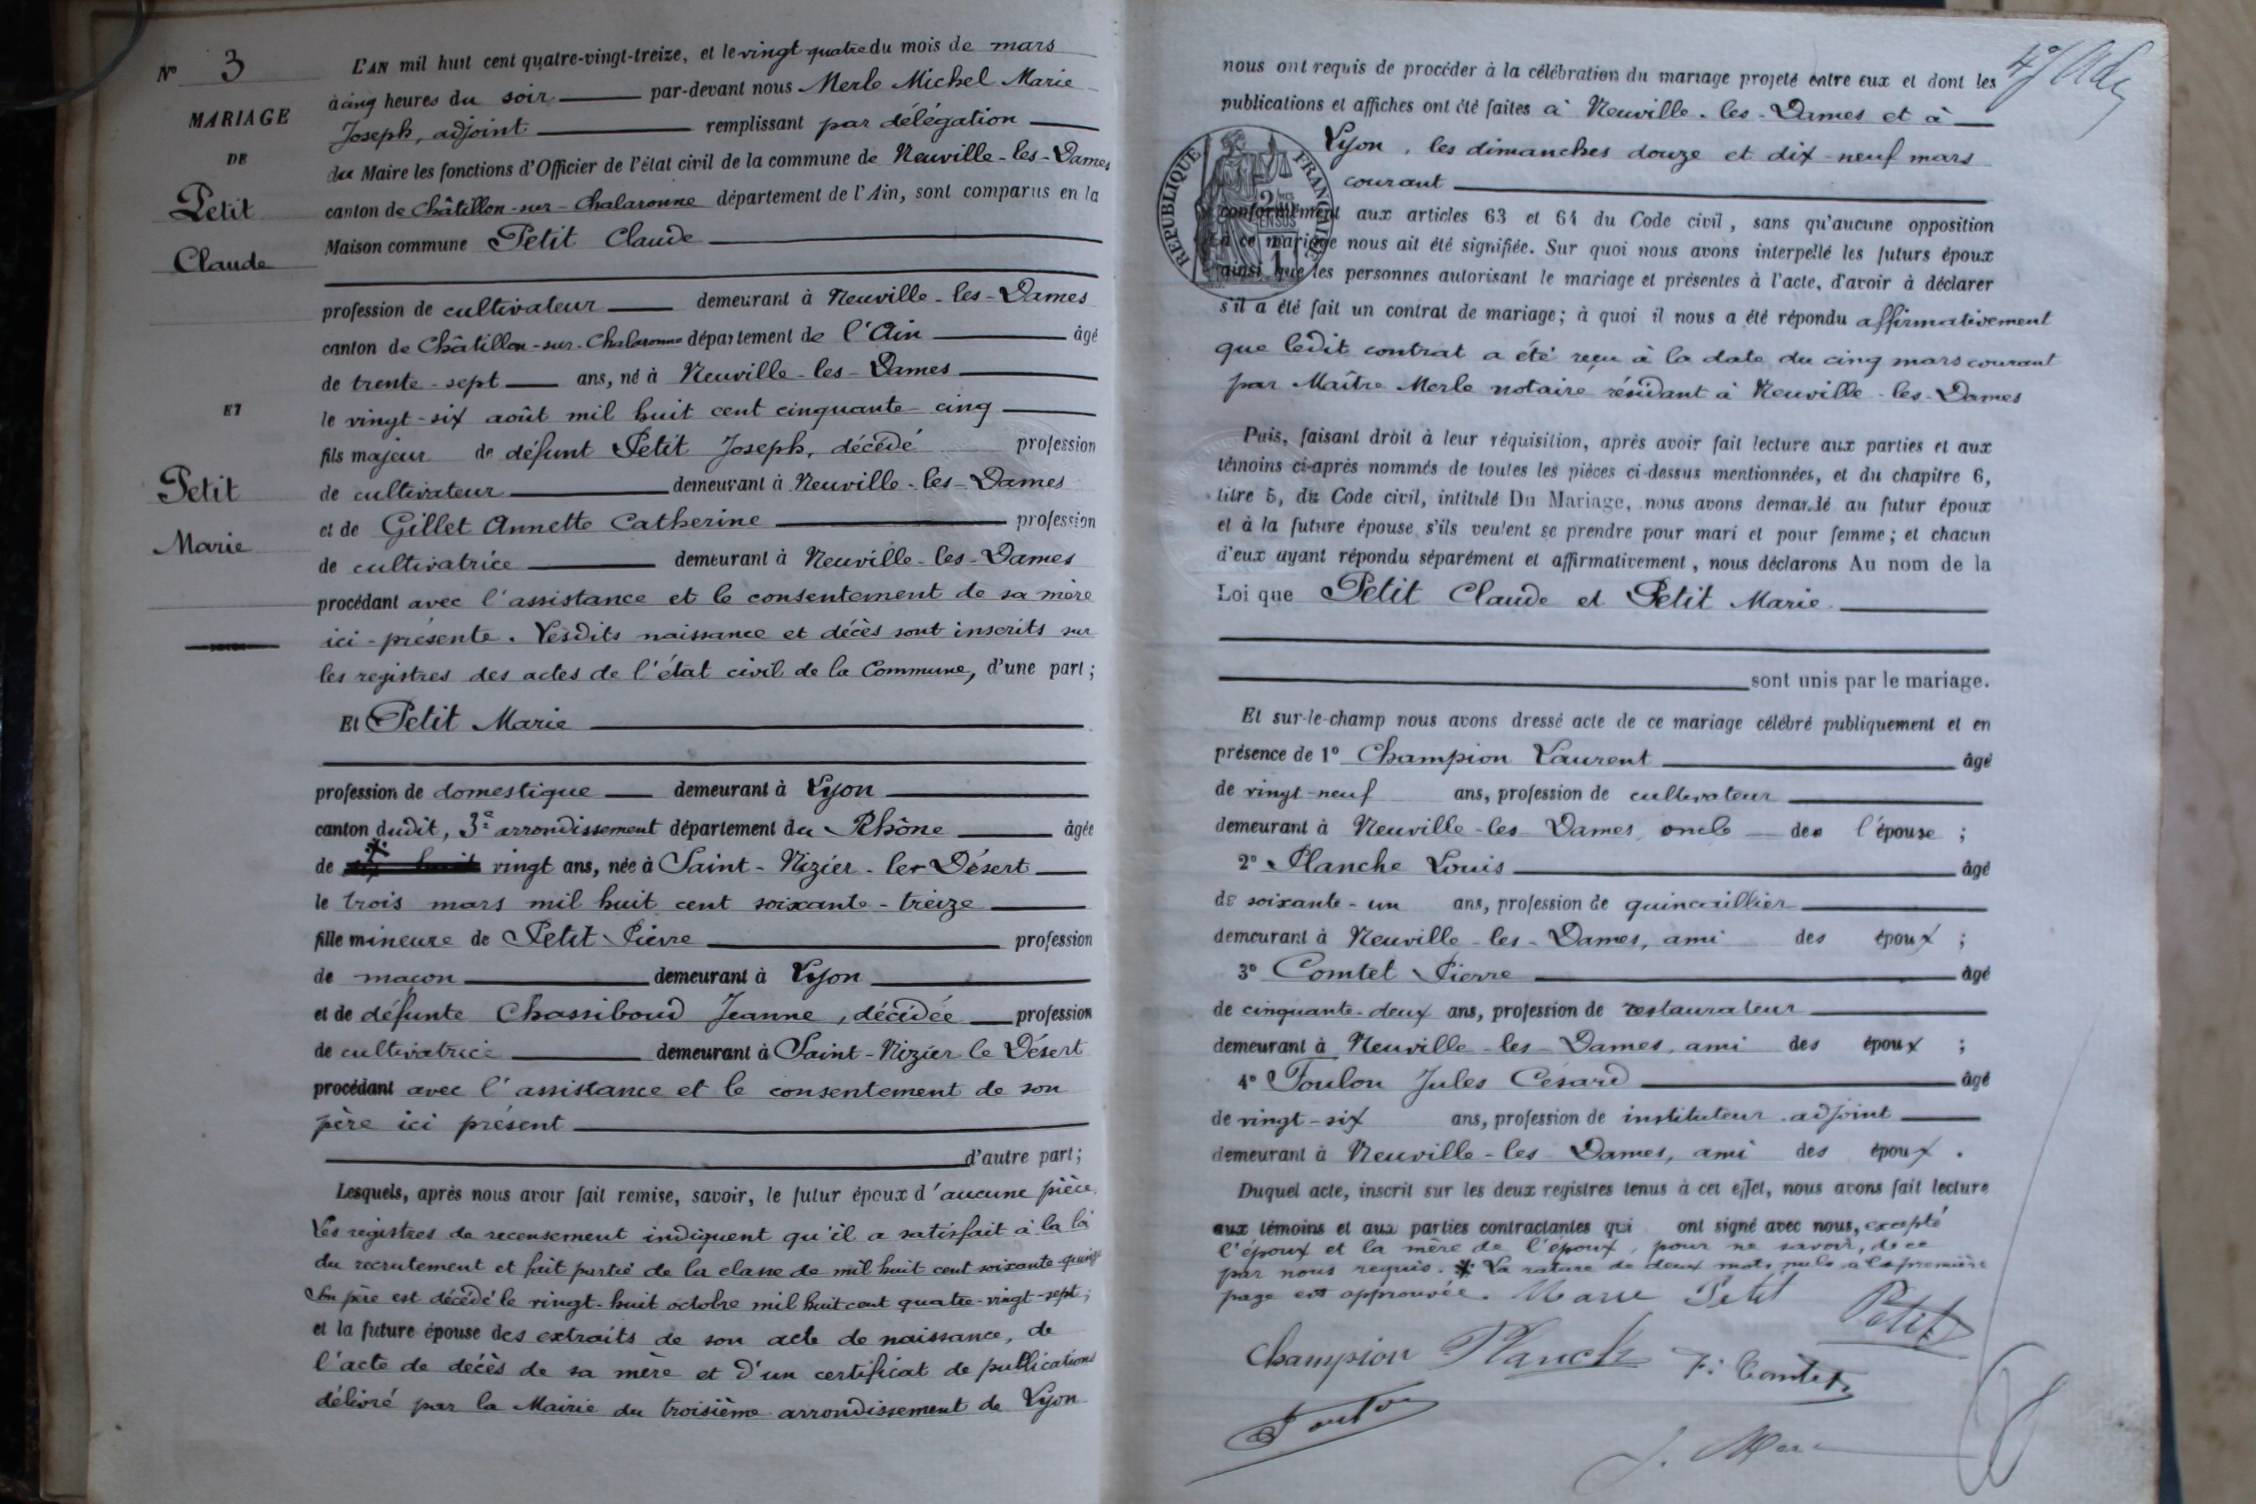 N° 3
MARIAGE
DE
Petit
Claude
ET
Petit
Marie
L'AN mil huit cent quatre-vingt-treize, et le vingt-quatre du mois de mars
à cinq heures du soir par-devant nous Merle Michel Marie
Joseph, adjoint remplissant par délégation
du Maire les fonctions d'Officier de l'état civil de la commune de Neuville-les-Dames
canton de Châtillon-sur-Chalaronne département de l'Ain, sont comparus en la
Maison commune Petit Claude
profession de cultivateur demeurant à Neuville-les-Dames
canton de Châtillon-sur-Chalaronne département de l'Ain âgé
de trente-sept ans, né à Neuville-les-Dames
le vingt-six août mil huit cent cinquante-cinq
fils majeur de défunt Petit Joseph, décédé profession
de cultivateur demeurant à Neuville-les-Dames
et de Gillet Annette Catherine profession
de cultivatrice demeurant à Neuville-les-Dames
procédant avec l'assistance et le consentement de sa mère
ici-présente. Lesdits naissance et décès sont inscrits sur
les registres des actes de l'état civil de la Commune, d'une part;
Et Petit Marie
profession de domestique demeurant à Lyon
canton dudit, 3e arrondissement département du Rhône âgée
de vingt ans, née à Saint-Nizier-le-Désert
le trois mars mil huit cent soixante-treize
fille mineure de Petit Pierre profession
de maçon demeurant à Lyon
et de défunte Chassiboud Jeanne, décédée profession
de cultivatrice demeurant à Saint-Nizier le Désert
procédant avec l'assistance et le consentement de son
père ici présent
d'autre part;
Lesquels, après nous avoir fait remise, savoir, le futur époux d'aucune pièce.
Les registres de recensement indiquent qu'il a satisfait à la loi
du recrutement et fait partie de la classe de mil huit cent soixante-quinze
Son père est décédé le vingt-huit octobre mil huit cent quatre-vingt-sept;
et la future épouse des extraits de son acte de naissance, de
l'acte de décès de sa mère et d'un certificat de publications
délivré par la Mairie du troisième arrondissement de Lyon
nous ont requis de procéder à la célébration du mariage projeté entre eux et dont les
publications et affiches ont été faites à Neuville-les-Dames et à
Lyon, les dimanches douze et dix-neuf mars
courant
REPUBLIQUE FRANÇAISE
conformément aux articles 63 et 64 du Code civil, sans qu'aucune opposition
à ce mariage nous ait été signifiée. Sur quoi nous avons interpellé les futurs époux
ainsi que les personnes autorisant le mariage et présentes à l'acte, d'avoir à déclarer
s'il a été fait un contrat de mariage; à quoi il nous a été répondu affirmativement
que ledit contrat a été reçu à la date du cinq mars courant
par Maître Merle notaire, résidant à Neuville-les-Dames
Puis, faisant droit à leur réquisition, après avoir fait lecture aux parties et aux
témoins ci-après nommés de toutes les pièces ci-dessus mentionnées, et du chapitre 6,
titre 5, du Code civil, intitulé Du Mariage, nous avons demandé au futur époux
et à la future épouse s'ils veulent se prendre pour mari et pour femme; et chacun
d'eux ayant répondu séparément et affirmativement, nous déclarons Au nom de la
Loi que Petit Claude et Petit Marie
sont unis par le mariage.
Et sur-le-champ nous avons dressé acte de ce mariage célébré publiquement et en
présence de 1° Champion Laurent âgé
de vingt-neuf ans, profession de cultivateur
demeurant à Neuville-les Dames, oncle de l'épouse;
2° Planche Louis âgé
de soixante-un ans, profession de quincaillier
demeurant à Neuville-les-Dames, ami des époux;
3° Comtet Pierre âgé
de cinquante-deux ans, profession de restaurateur
demeurant à Neuville-les-Dames, ami des époux;
4° Toulon Jules Césard âgé
de vingt-six ans, profession de instituteur-adjoint
demeurant à Neuville-les-Dames, ami des époux.
Duquel acte, inscrit sur les deux registres tenus à cet effet, nous avons fait lecture
aux témoins et aux parties contractantes qui ont signé avec nous, excepté
l'époux et la mère de l'époux, pour ne savoir, de ce
par nous requis. * La rature de deux mots nuls à la première
page est approuvée. Marie Petit
Petit
Champion Planche